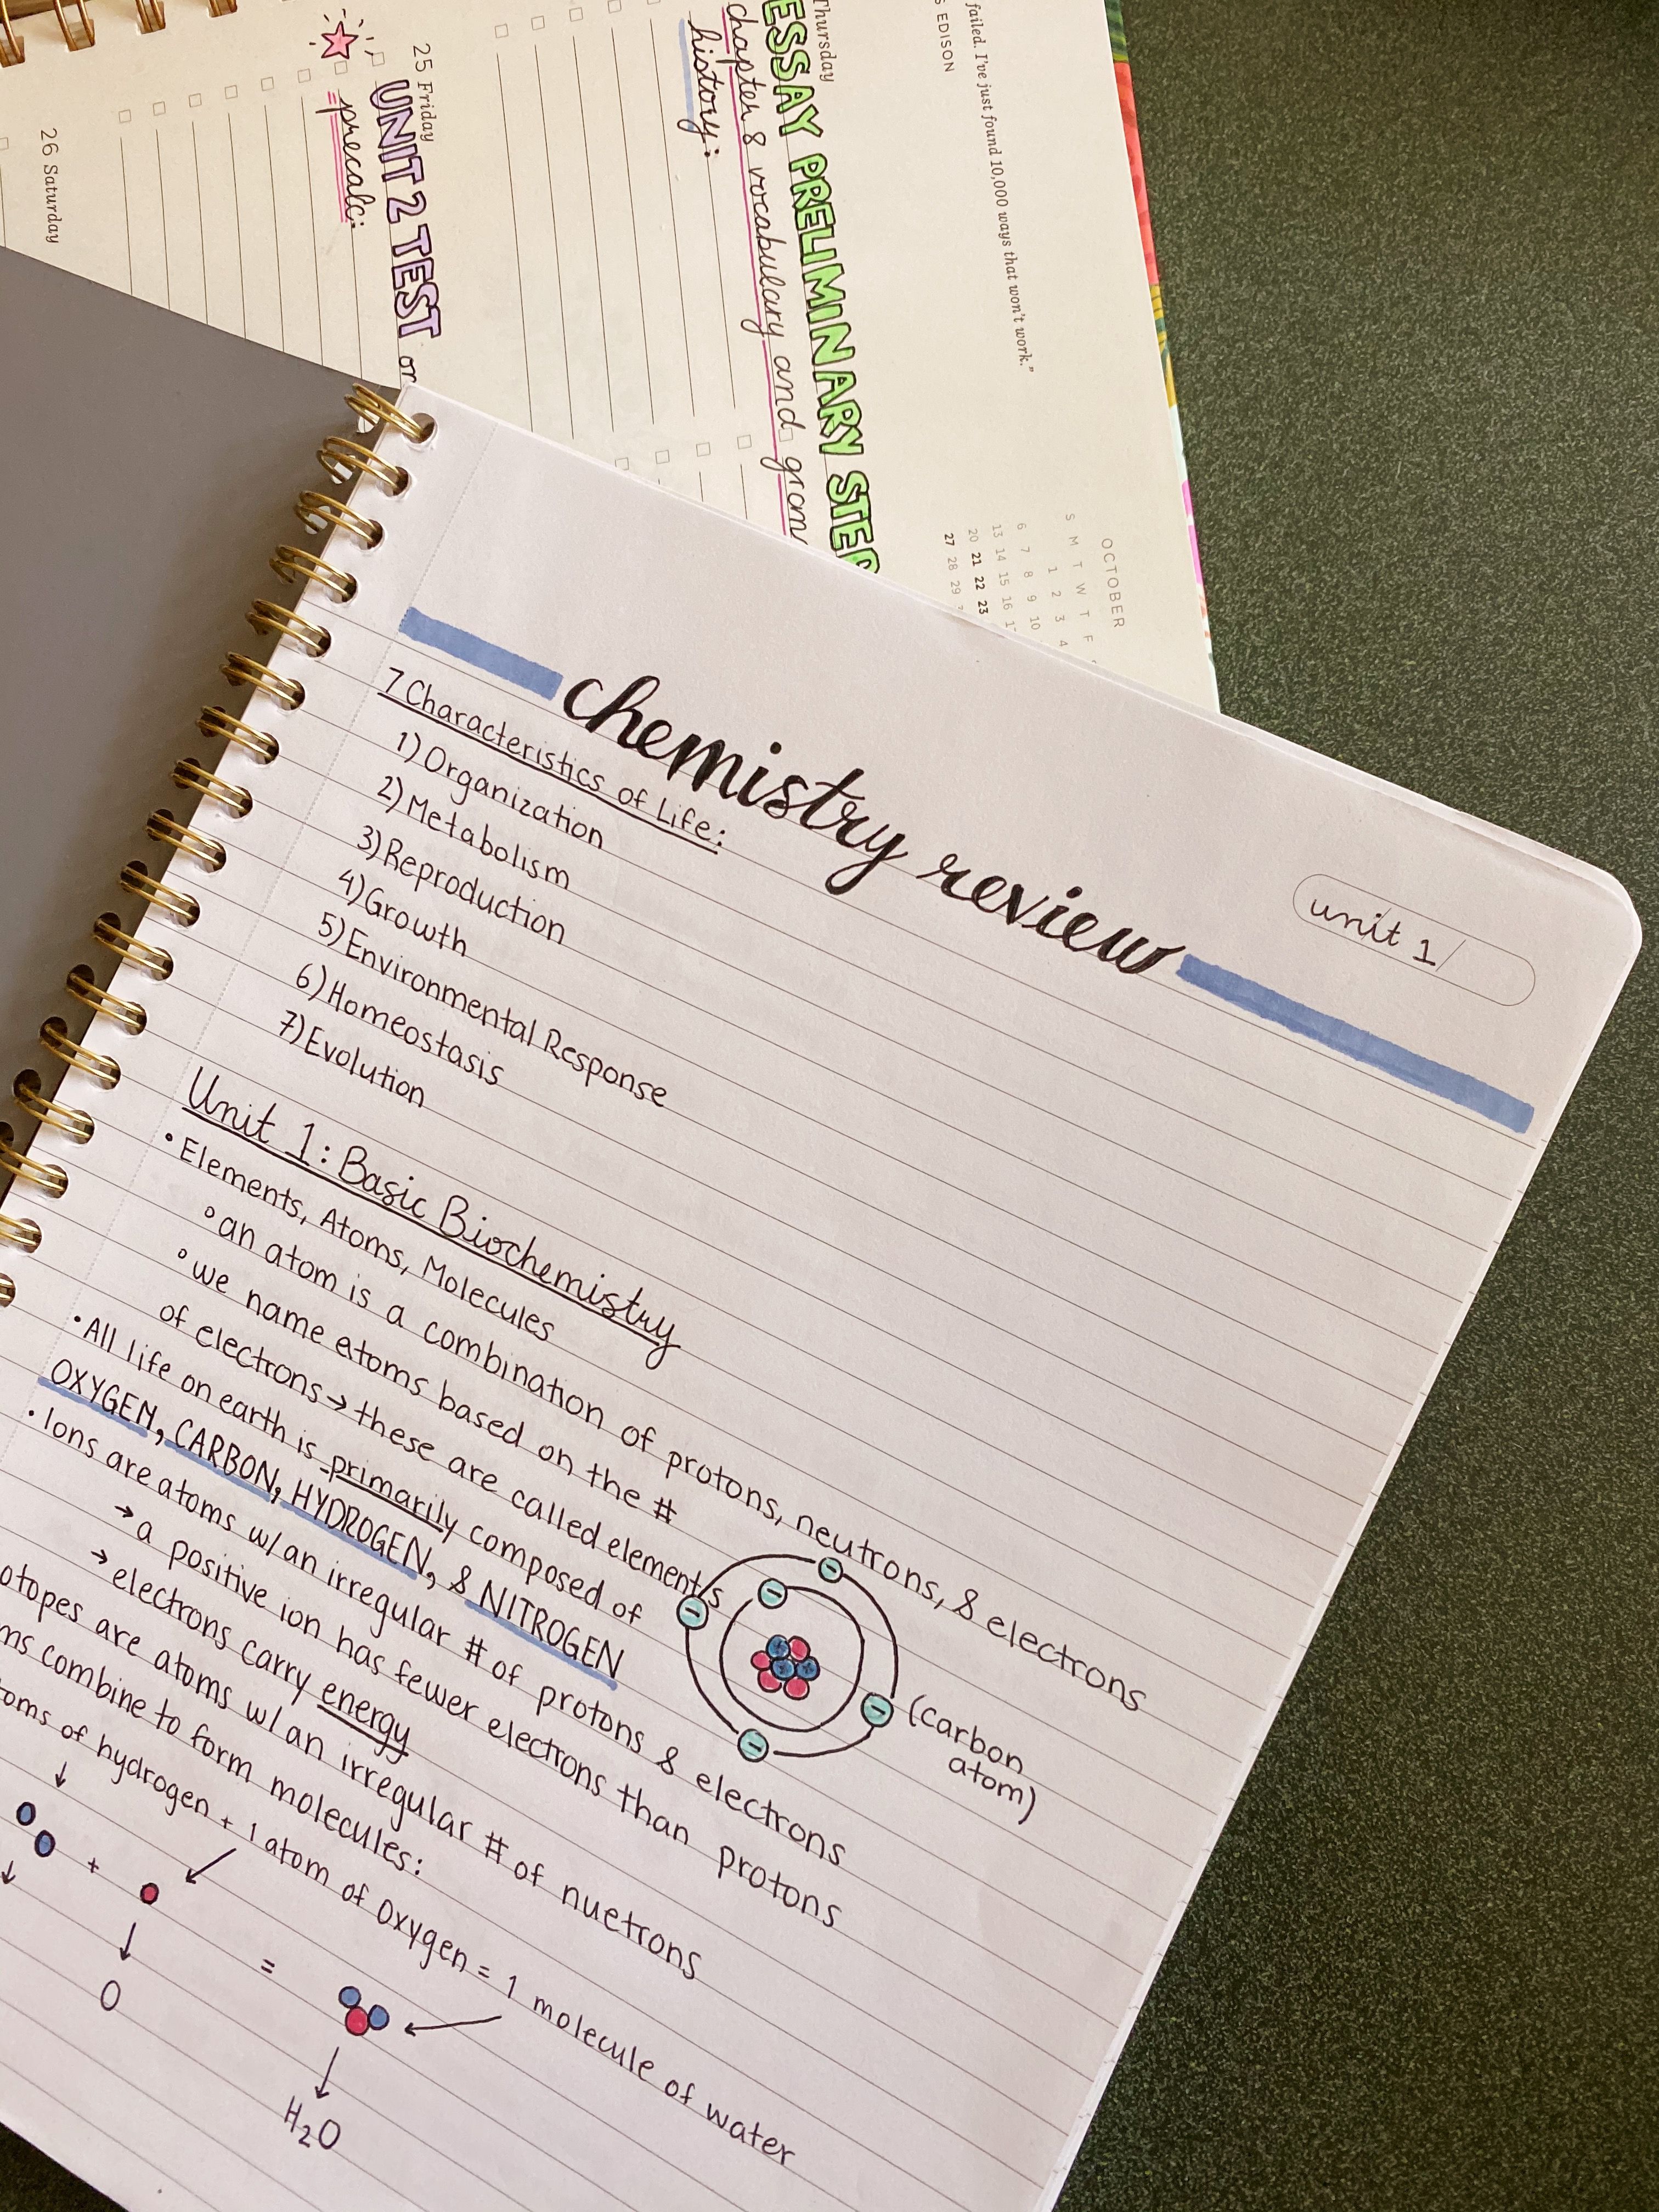 failed. I've just found 10,000 ways that won't work."
EDISON
OCTOBER
S M T W T F
1 2 3 4
6 7 8 9 10
13 14 15 16
20 21 22 23
27 28 29
Thursday
ESSAY PRELIMINARY STEP
chapter 8 vocabulary and gram
history:
25 Friday
UNIT 2 TEST on
precalc:
26 Saturday
chemistry review
unit 1
7 Characteristics of Life:
1) Organization
2) Metabolism
3) Reproduction
4) Growth
5) Environmental Response
6) Homeostasis
7) Evolution
Unit 1: Basic Biochemistry
• Elements, Atoms, Molecules
° an atom is a combination of protons, neutrons, & electrons
° we name atoms based on the #
of electrons → these are called elements
• All life on earth is primarily composed of
OXYGEN, CARBON, HYDROGEN, & NITROGEN
(carbon
atom)
• Ions are atoms w/ an irregular # of protons & electrons
→ a positive ion has fewer electrons than protons
→ electrons carry energy
otopes are atoms w/ an irregular # of nuetrons
ms combine to form molecules:
toms of hydrogen + 1 atom of oxygen = 1 molecule of water
+
=
O
H₂O